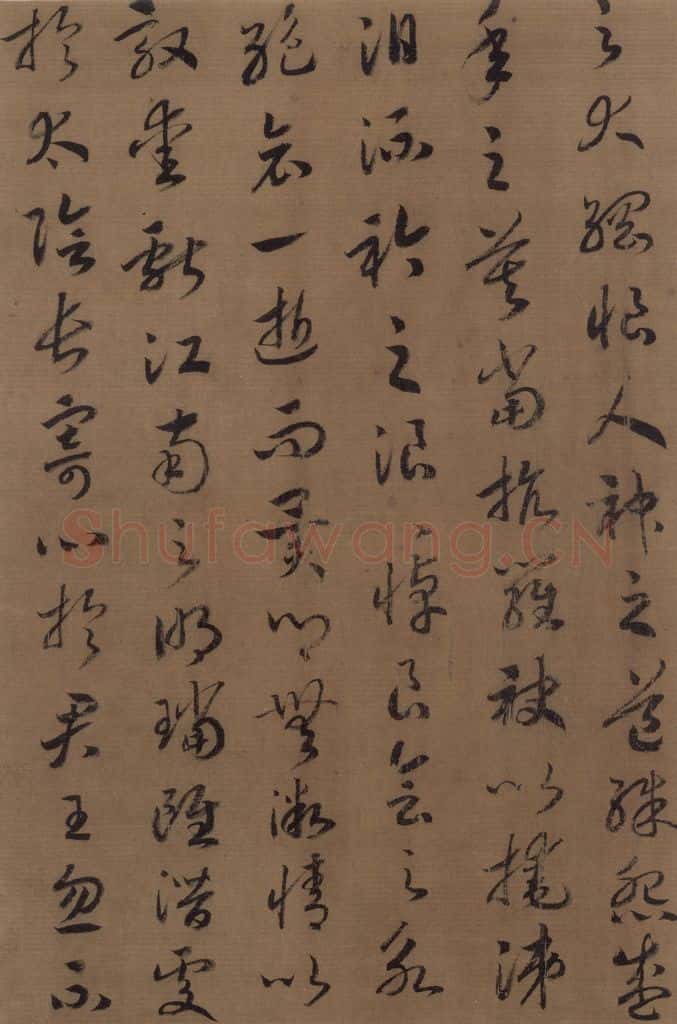 之大綱恨人神之道殊怨盛
年之莫當抗羅袂以掩涕
泪流衿之浪〻悼良會之永
絕哀一逝而異鄉無微情以
效愛獻江南之明璫雖潛處
於太陰長寄心於君王忽不
Shufawang.CN